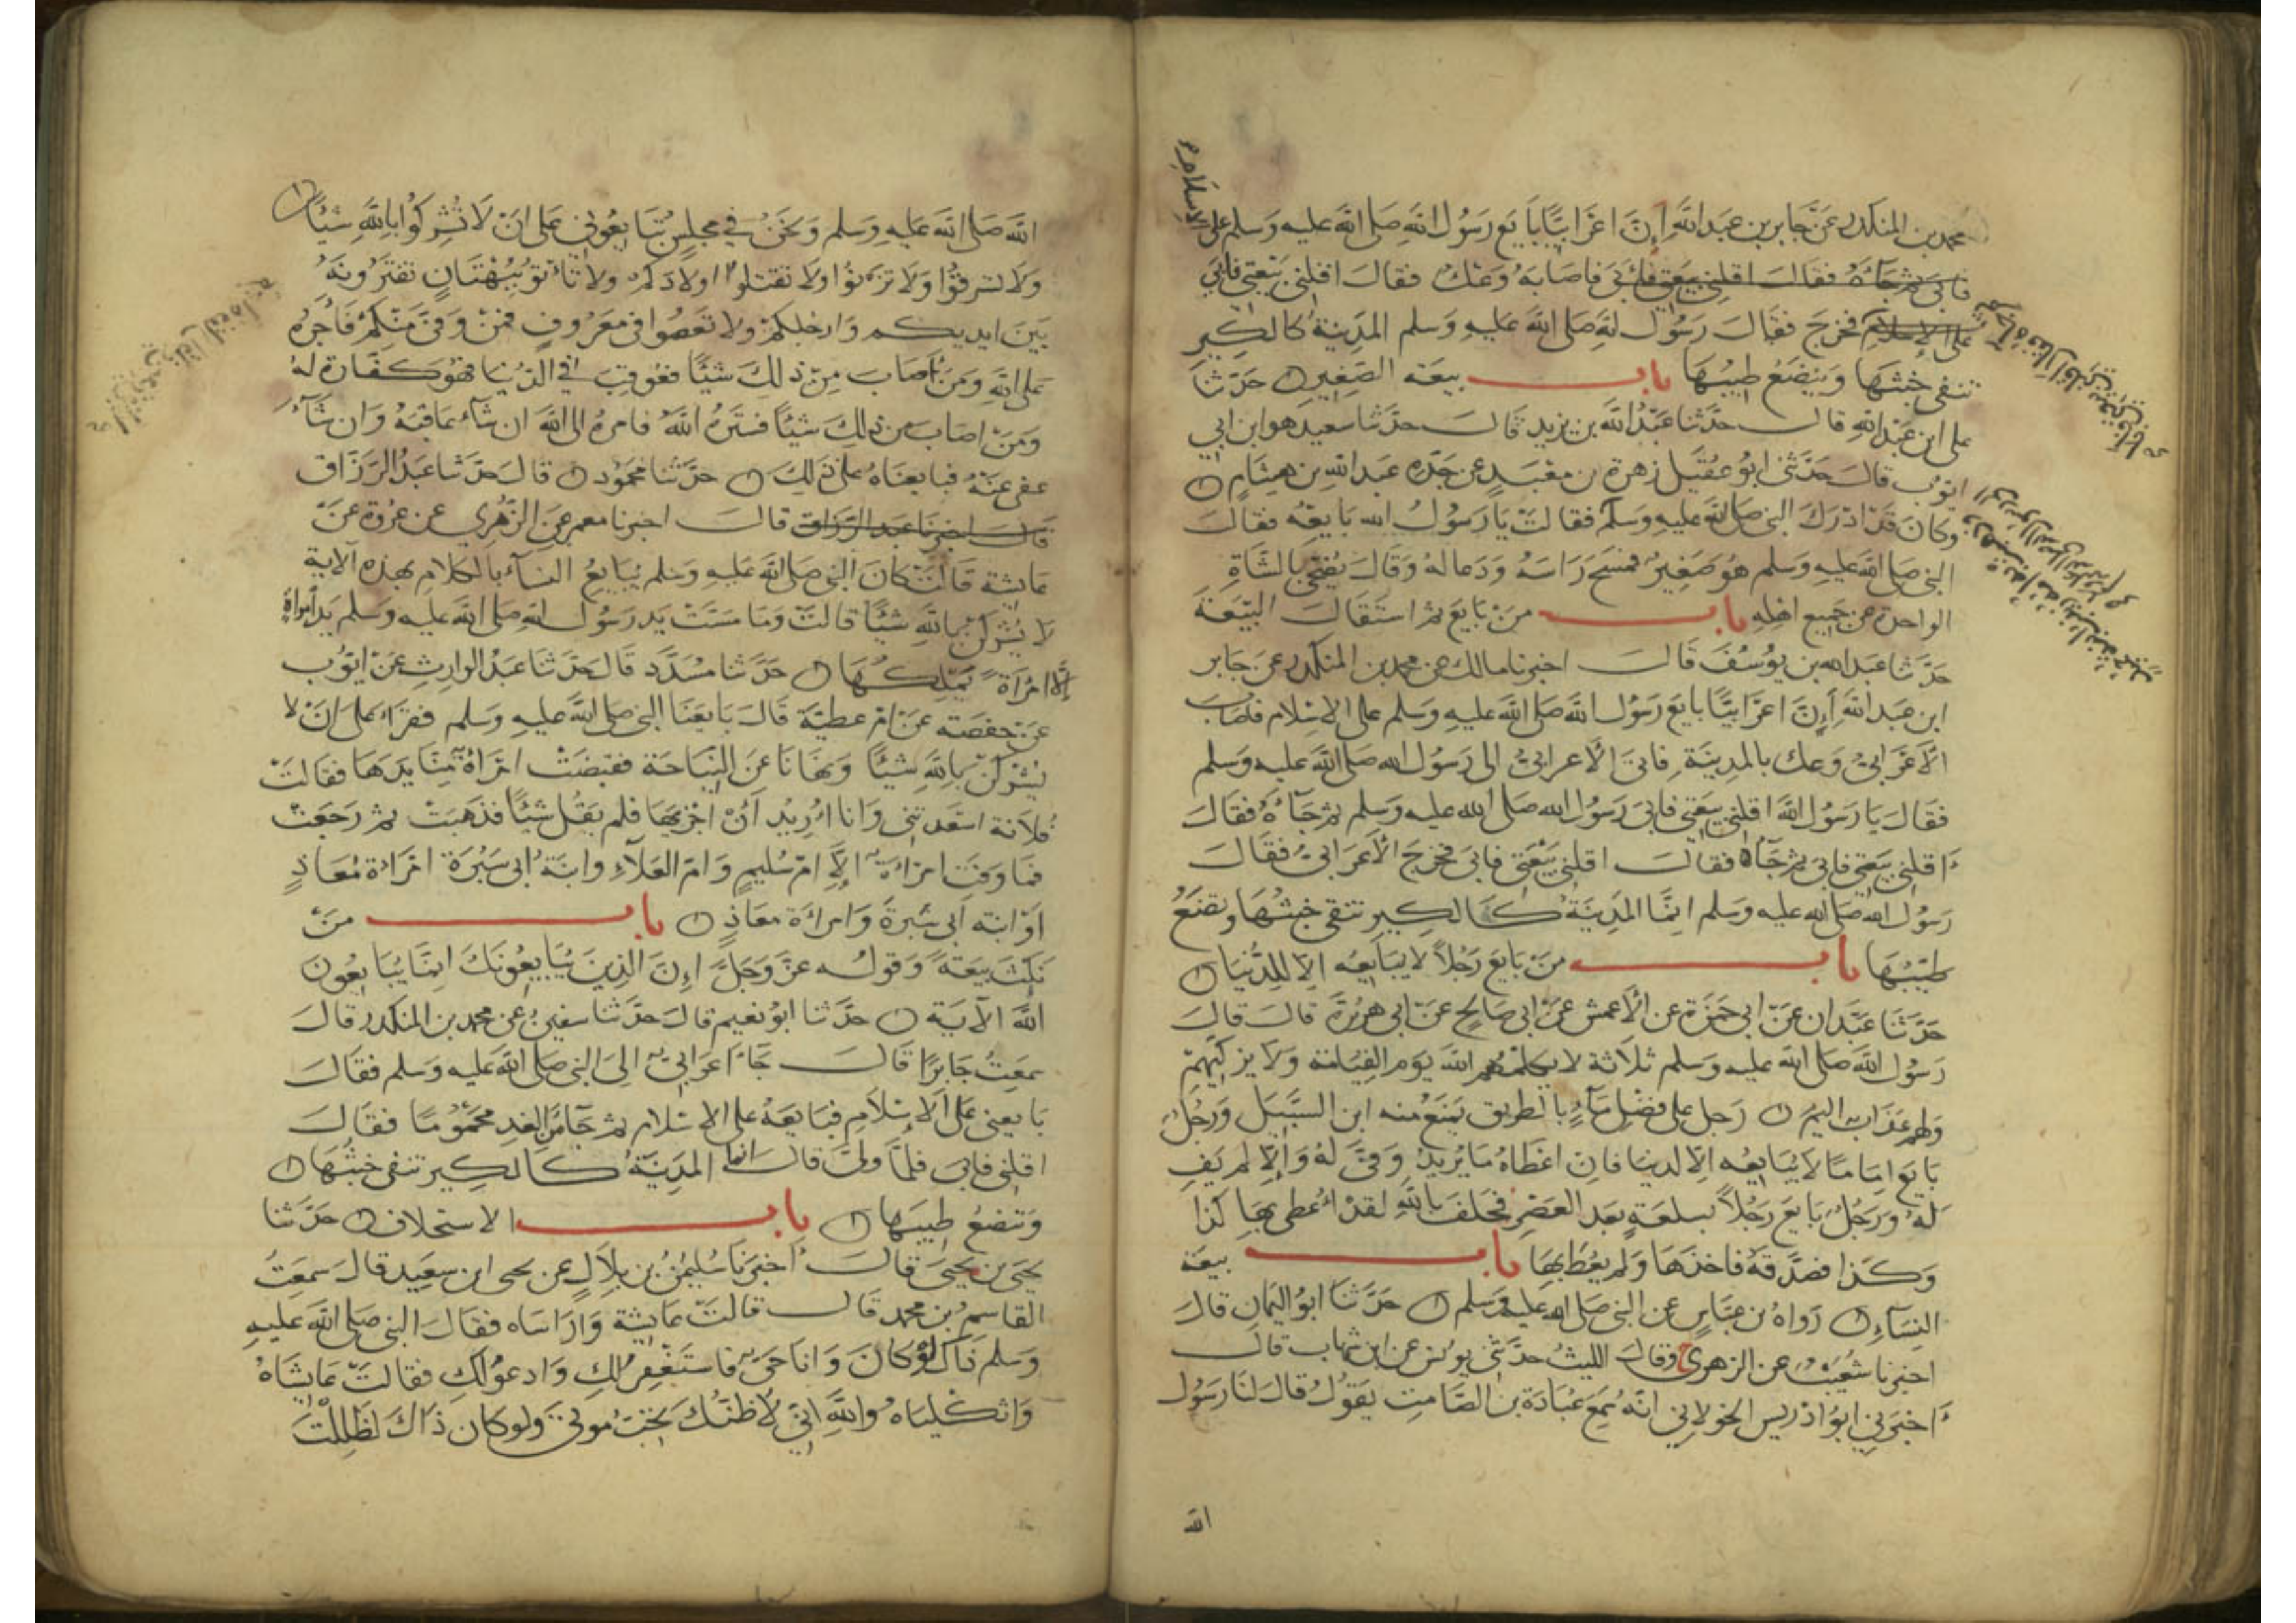 محمد بن المنكدر عن جابر بن عبد الله إن اعرابيًا بايع رسول الله صلى الله عليه وسلم على الإسلام
فاصابه وعك فقال اقلني بيعتي فابى
ثم جآءه فقال اقلني بيعتي فابى
فخرج فقال رسول الله صلى الله عليه وسلم المدينة كالكير
تنفى خبثها وينصع طيبها باب بيعة الصغير حدثنا
على ابن عبد الله قال حدثنا عبد الله بن يزيد قال حدثنا سعيد هو ابن ابي
ايوب قال حدثني ابو عقيل زهرة بن معبد عن جده عبد الله بن هشام
وكان قد ادرك النبي صلى الله عليه وسلم فقالت يا رسول الله بايعه فقال
النبي صلى الله عليه وسلم هو صغير فمسح راسه ودعا له وقال يضحي بالشاة
الواحدة عن جميع اهله باب من بايع ثم استقال البيعة
حدثنا عبد الله بن يوسف قال اخبرنا مالك عن محمد بن المنكدر عن جابر
ابن عبد الله أن اعرابيًا بايع رسول الله صلى الله عليه وسلم على الاسلام فاصاب
الأعرابي وعك بالمدينة فاتى الأعرابي الى رسول الله صلى الله عليه وسلم
فقال يا رسول الله اقلني بيعتي فابى رسول الله صلى الله عليه وسلم ثم جآءه فقال
اقلني بيعتي فابى ثم جآه فقال اقلني بيعتي فابى فخرج الأعرابي فقال
رسول الله صلى الله عليه وسلم انما المدينة كالكير تنفي خبثها وتصنع
طيبها باب من بايع رجلاً لا يبايعه الا للدنيا
حدثنا عبدان عن ابي حمزة عن الأعمش عن ابي صالح عن ابي هريرة قال قال
رسول الله صلى الله عليه وسلم ثلاثة لا يكلمهم الله يوم القيامة ولا يزكيهم
ولهم عذاب اليم رجل على فضل مآء بالطريق يمنع منه ابن السبيل ورجل
بايع امامًا لا يبايعه الا لدنيا فان اعطاه ما يريد وفى له والا لم يف
له ورجل بايع رجلاً بسلعة بعد العصر فحلف بالله لقد أعطي بها كذا
وكذا فصدقه فاخذها ولم يعط بها باب بيعة
النسآء رواه بن عباس عن النبي صلى الله عليه وسلم حدثنا ابو اليمان قال
اخبرنا شعيب عن الزهري ح وقال الليث حدثني يونس عن ابن شهاب قال
اخبرني ابو ادريس الخولاني انه سمع عبادة بن الصامت يقول قال لنا رسول
الله
الله صلى الله عليه وسلم ونحن في مجلس تبايعوني على ان لا تشركوا بالله شيئًا
ولا تسرقوا ولا تزنوا ولا تقتلوا اولادكم ولا تأتو ببهتان تفترونه
بين ايديكم وارجلكم ولا تعصوا في معروف فمن وفى منكم فأجره
على الله ومن أصاب من ذلك شيئًا فعوقب في الدنيا فهو كفارة له
ومن اصاب من ذلك شيئًا فستره الله فامره الى الله ان شآء عاقبه وان شآء
عفى عنه فبايعناه على ذلك حدثنا محمود قال حدثنا عبد الرزاق
قال اخبرنا عبد الرزاق قال اخبرنا معمر عن الزهري عن عروة عن
عايشة قالت كان النبي صلى الله عليه وسلم يبايع النسآء بالكلام بهذه الآية
لا يشركن بالله شيئًا قالت وما مست يد رسول الله صلى الله عليه وسلم يد امراة
إلا امرأة يملكها حدثنا مسدد قال حدثنا عبد الوارث عن ايوب
عن حفصة عن ام عطية قال بايعنا النبي صلى الله عليه وسلم فقرا على ان لا
يشركن بالله شيئًا ونهانا عن النياحة فقبضت امرأة منا يدها فقالت
فلانة اسعدتني وانا اريد أن اجزيها فلم يقل شيئًا فذهبت ثم رجعت
فما وفت امراة الا ام سليم وام العلآء وابنة ابى سبرة امراة معاذ
او ابنة ابى سبرة وامراة معاذ باب من
نكث بيعة وقوله عز وجل إن الذين يبايعونك انما يبايعون
الله الآية حدثنا ابو نعيم قال حدثنا سفين عن محمد بن المنكدر قال
سمعت جابرا قال جآء اعرابي الى النبي صلى الله عليه وسلم فقال
بايعنى على الإسلام فبايعه على الاسلام ثم جآء من الغد محمومًا فقال
اقلني فابى فلما ولى قال انما المدينة كالكير تنفى خبثها
وتنصع طيبها باب الاستخلاف حدثنا
يحيى بن يحيى قال أخبرنا سليمن بن بلال عن يحيى ابن سعيد قال سمعت
القاسم بن محمد قال قالت عايشة واراساه فقال النبي صلى الله عليه
وسلم ذاك لو كان وانا حي فاستغفر لك وادعو لك فقالت عايشة
واثكلياه والله انى لأظنك تحب موتى ولو كان ذاك لظللت